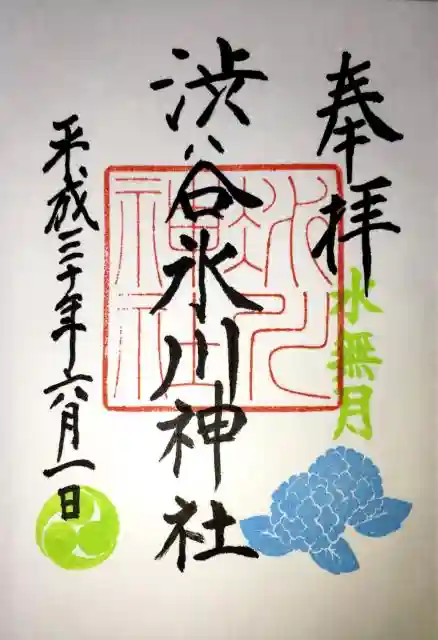 奉拝
水無月
渋谷氷川神社
平成三十年六月一日